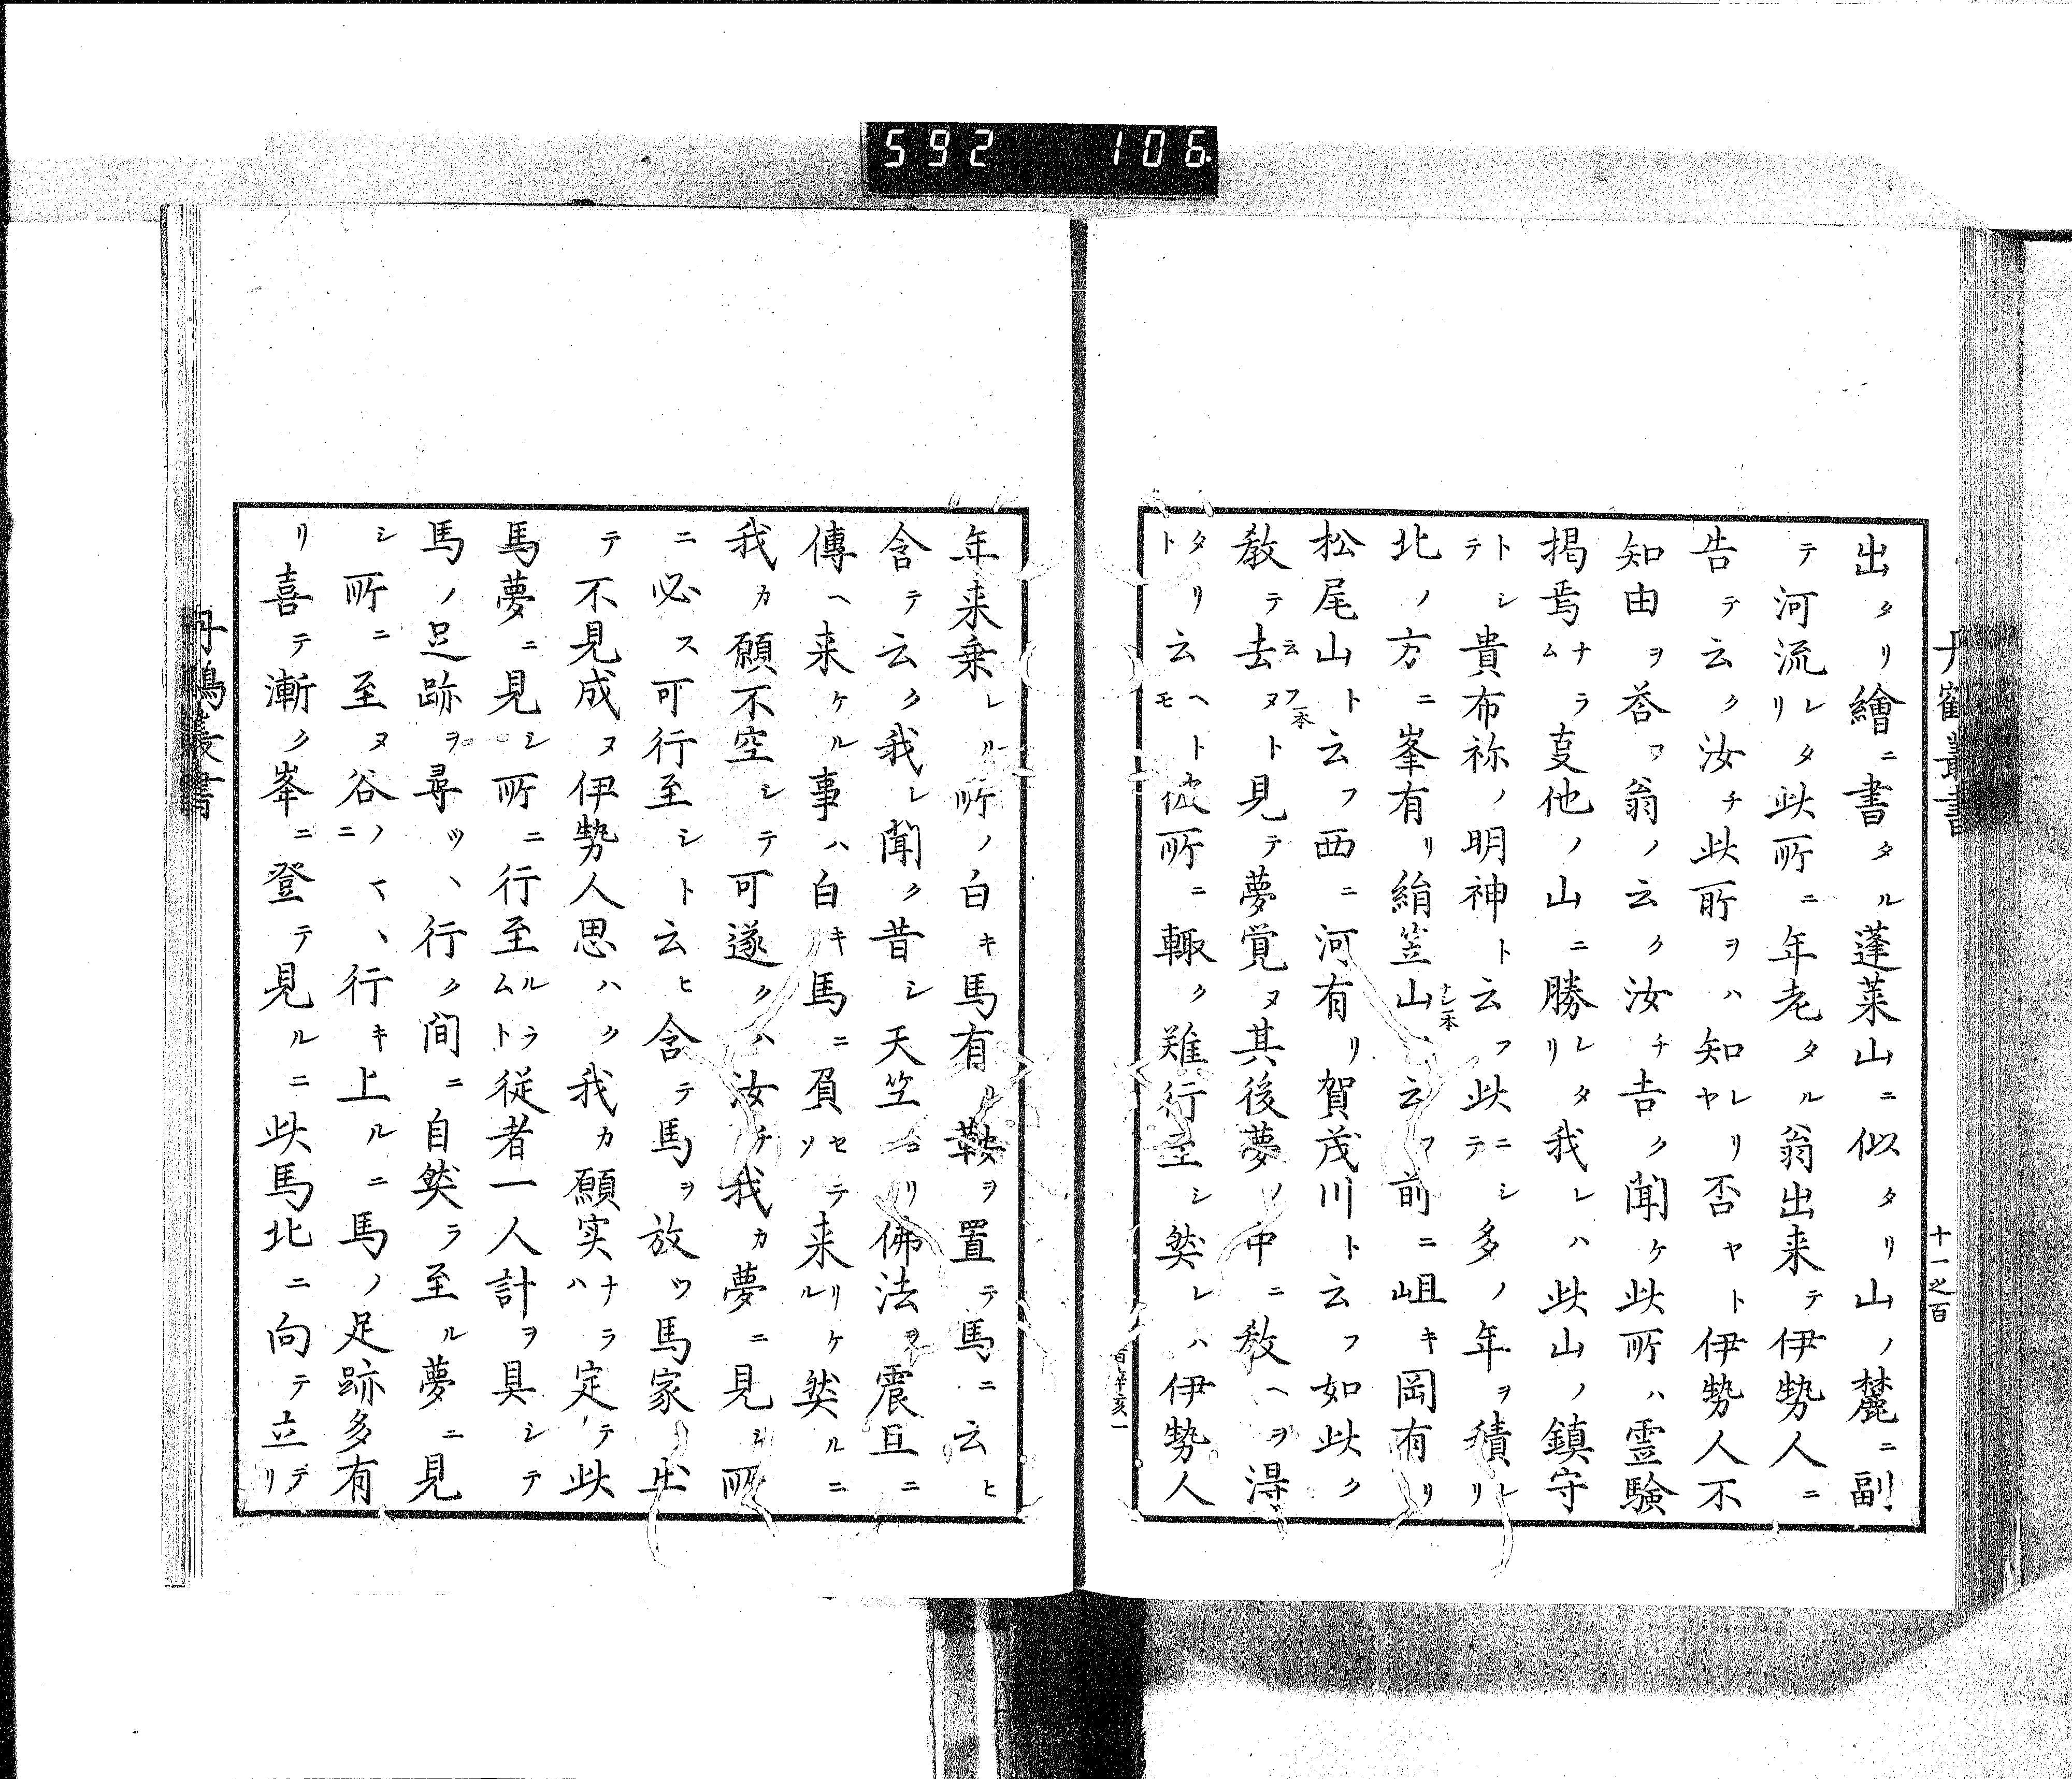 592 106
丹鶴叢書
十一之百
出タリ繪ニ書タル蓬莱山ニ似タリ山ノ麓ニ副
テ河流レタリ此所ニ年老タル翁出来テ伊勢人ニ
告テ云ク汝チ此所ヲハ知レリヤ否ヤト伊勢人不
知由ヲ荅フ翁ノ云ク汝チ吉ク聞ケ此所ハ霊験
掲焉ナラム㕝他ノ山ニ勝レタリ我レハ此山ノ鎮守
トシテ貴布祢ノ明神ト云フ此ニシテ多ノ年ヲ積レリ
北ノ方ニ峯有リ絹笠山ナシ一本云フ前ニ岨キ岡有リ
松尾山ト云フ西ニ河有リ賀茂川ト云フ如此ク
教テ去云フ一本ヌト見テ夢覚ヌ其後夢ノ中ニ教ヘヲ淂
タリト云ヘトモ彼所ニ輙ク難行至シ然レハ伊勢人
百辛亥一
年来乗レル所ノ白キ馬有ル鞍ヲ置テ馬ニ云ヒ
含テ云ク我レ聞ク昔シ天竺ヨリ佛法ヲ震旦ニ
傳ヘ来ケル事ハ白キ馬ニ負セテソ来リケル然ルニ
我カ願不空シテ可遂クハ汝チ我カ夢ニ見シ所
ニ必ス可行至シト云ヒ含テ馬ヲ放ツ馬家出
テ不見成ヌ伊勢人思ハク我カ願実ナラハ定テ此
馬夢ニ見シ所ニ行至ルラムト従者一人計ヲ具シテ
馬ノ足跡ヲ尋ツヽ行ク間ニ自然ラ至ル夢ニ見
シ所ニ至ヌ谷ノマヽニ行キ上ルニ馬ノ足跡多有
リ喜テ漸ク峯ニ登テ見ルニ此馬北ニ向テ立テリ
丹鶴叢書